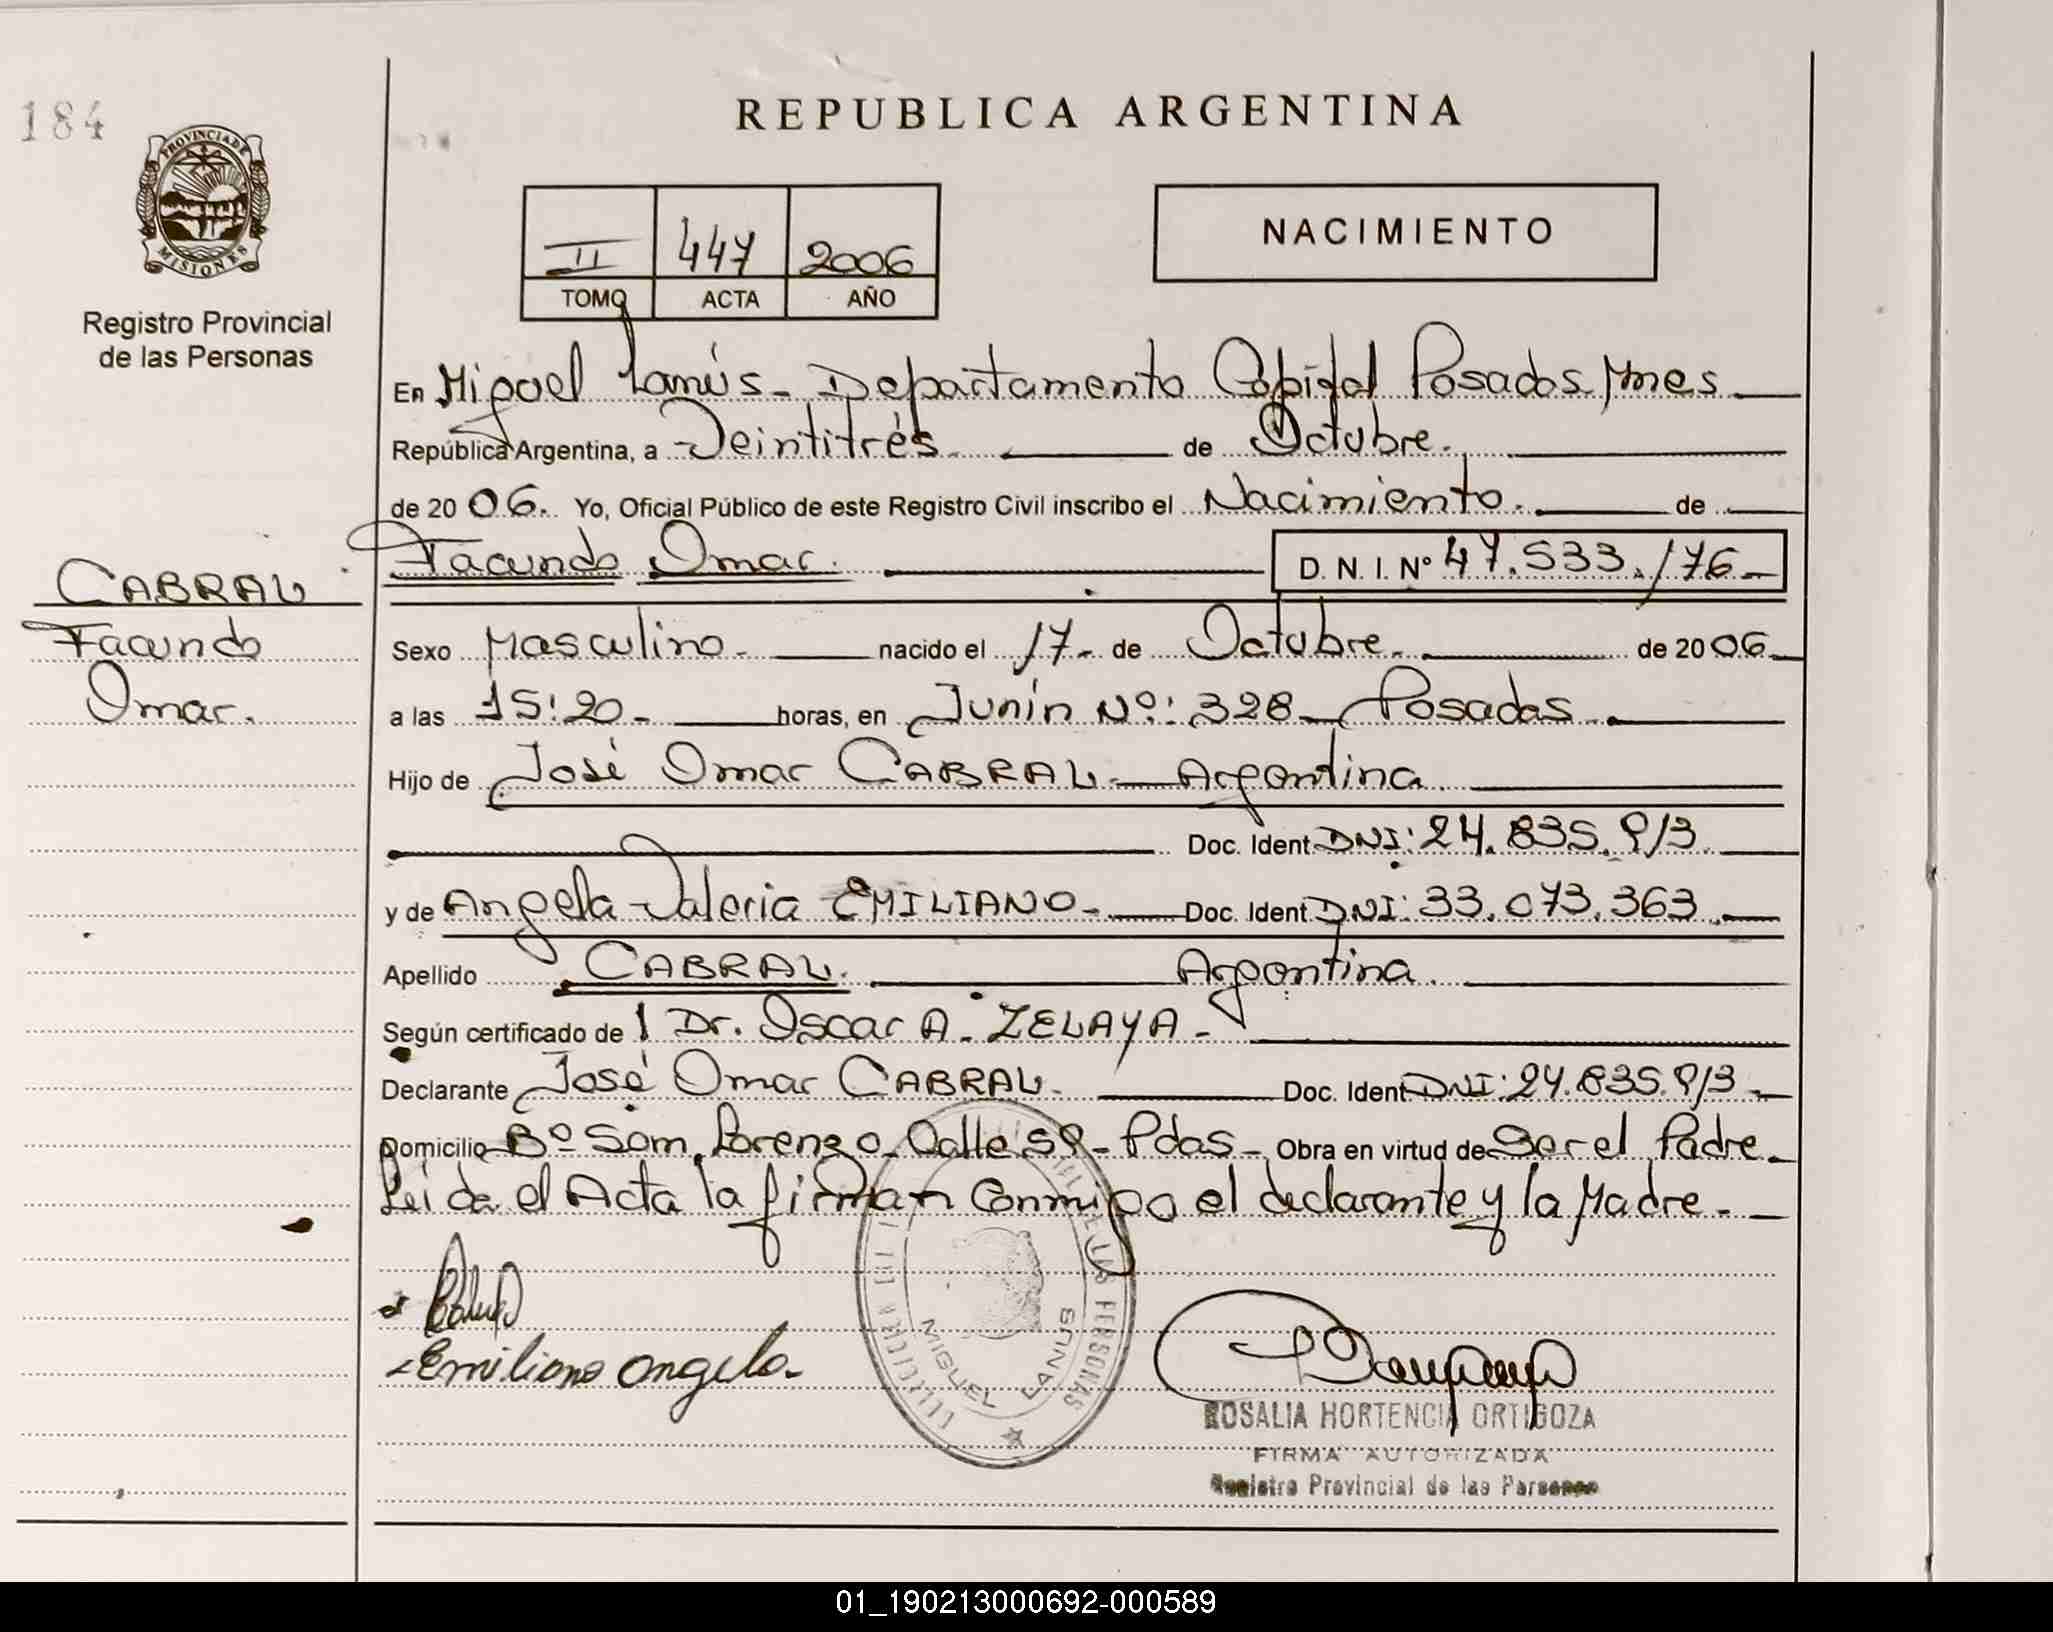 184
PROVINCIA DE
MISIONES
Registro Provincial
de las Personas
REPUBLICA ARGENTINA
II 447 2006
TOMO ACTA AÑO
NACIMIENTO
En Miguel Lanús - Departamento Capital Posadas Mnes
República Argentina, a Veintitrés de Octubre.
de 2006. Yo, Oficial Público de este Registro Civil inscribo el Nacimiento. de
Facundo Omar. D. N. I. Nº 47.533.176
CABRAL
Facundo
Omar.
Sexo Masculino nacido el 17 de Octubre. de 2006
a las 15:20 horas, en Junín Nº: 328 - Posadas
Hijo de José Omar CABRAL - Argentina
Doc. Ident DNI: 24.835.913
y de Angela Valeria EMILIANO - Doc. Ident DNI: 33.073.363
Apellido CABRAL. Argentina.
Según certificado de 1 Dr. Oscar A. ZELAYA -
Declarante José Omar CABRAL. Doc. Ident DNI: 24.835.913
Domicilio Bº Sam. Lorenzo - Calle 59 - Pdas - Obra en virtud de Ser el Padre
Leida el Acta la firman Conmigo el declarante y la Madre -
Emiliano Angela
MIGUEL LANUS
ROSALIA HORTENCIA ORTIGOZA
FIRMA AUTORIZADA
Registro Provincial de las Personas
01_190213000692-000589